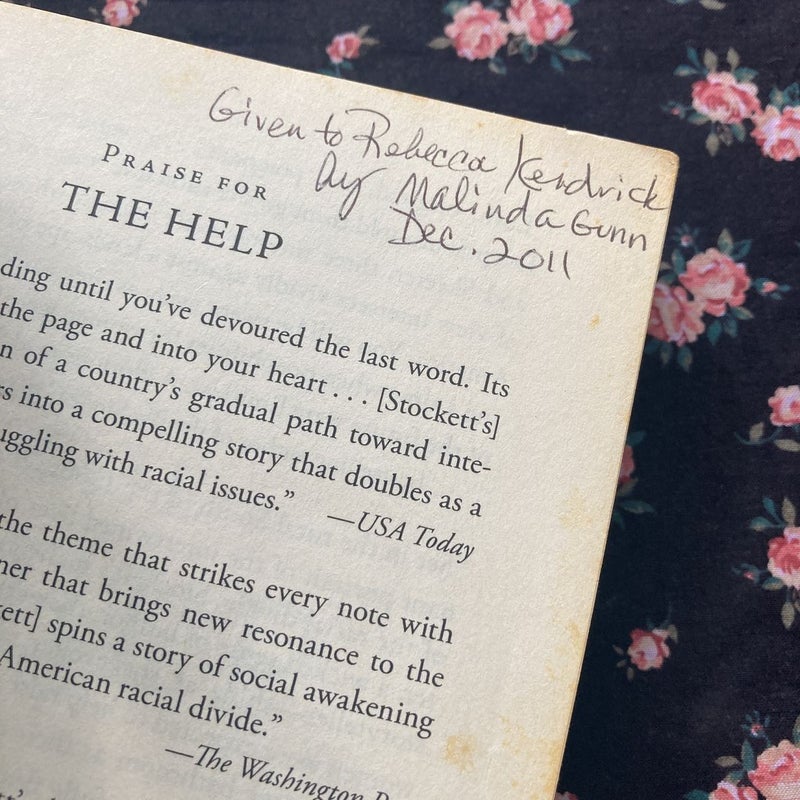 Given to Rebecca Kendrick
by Malinda Gunn
Dec. 2011
PRAISE FOR
THE HELP
ding until you've devoured the last word. Its
the page and into your heart . . . [Stockett's]
n of a country's gradual path toward inte-
rs into a compelling story that doubles as a
uggling with racial issues."
—USA Today
the theme that strikes every note with
ner that brings new resonance to the
kett] spins a story of social awakening
American racial divide."
—The Washington P